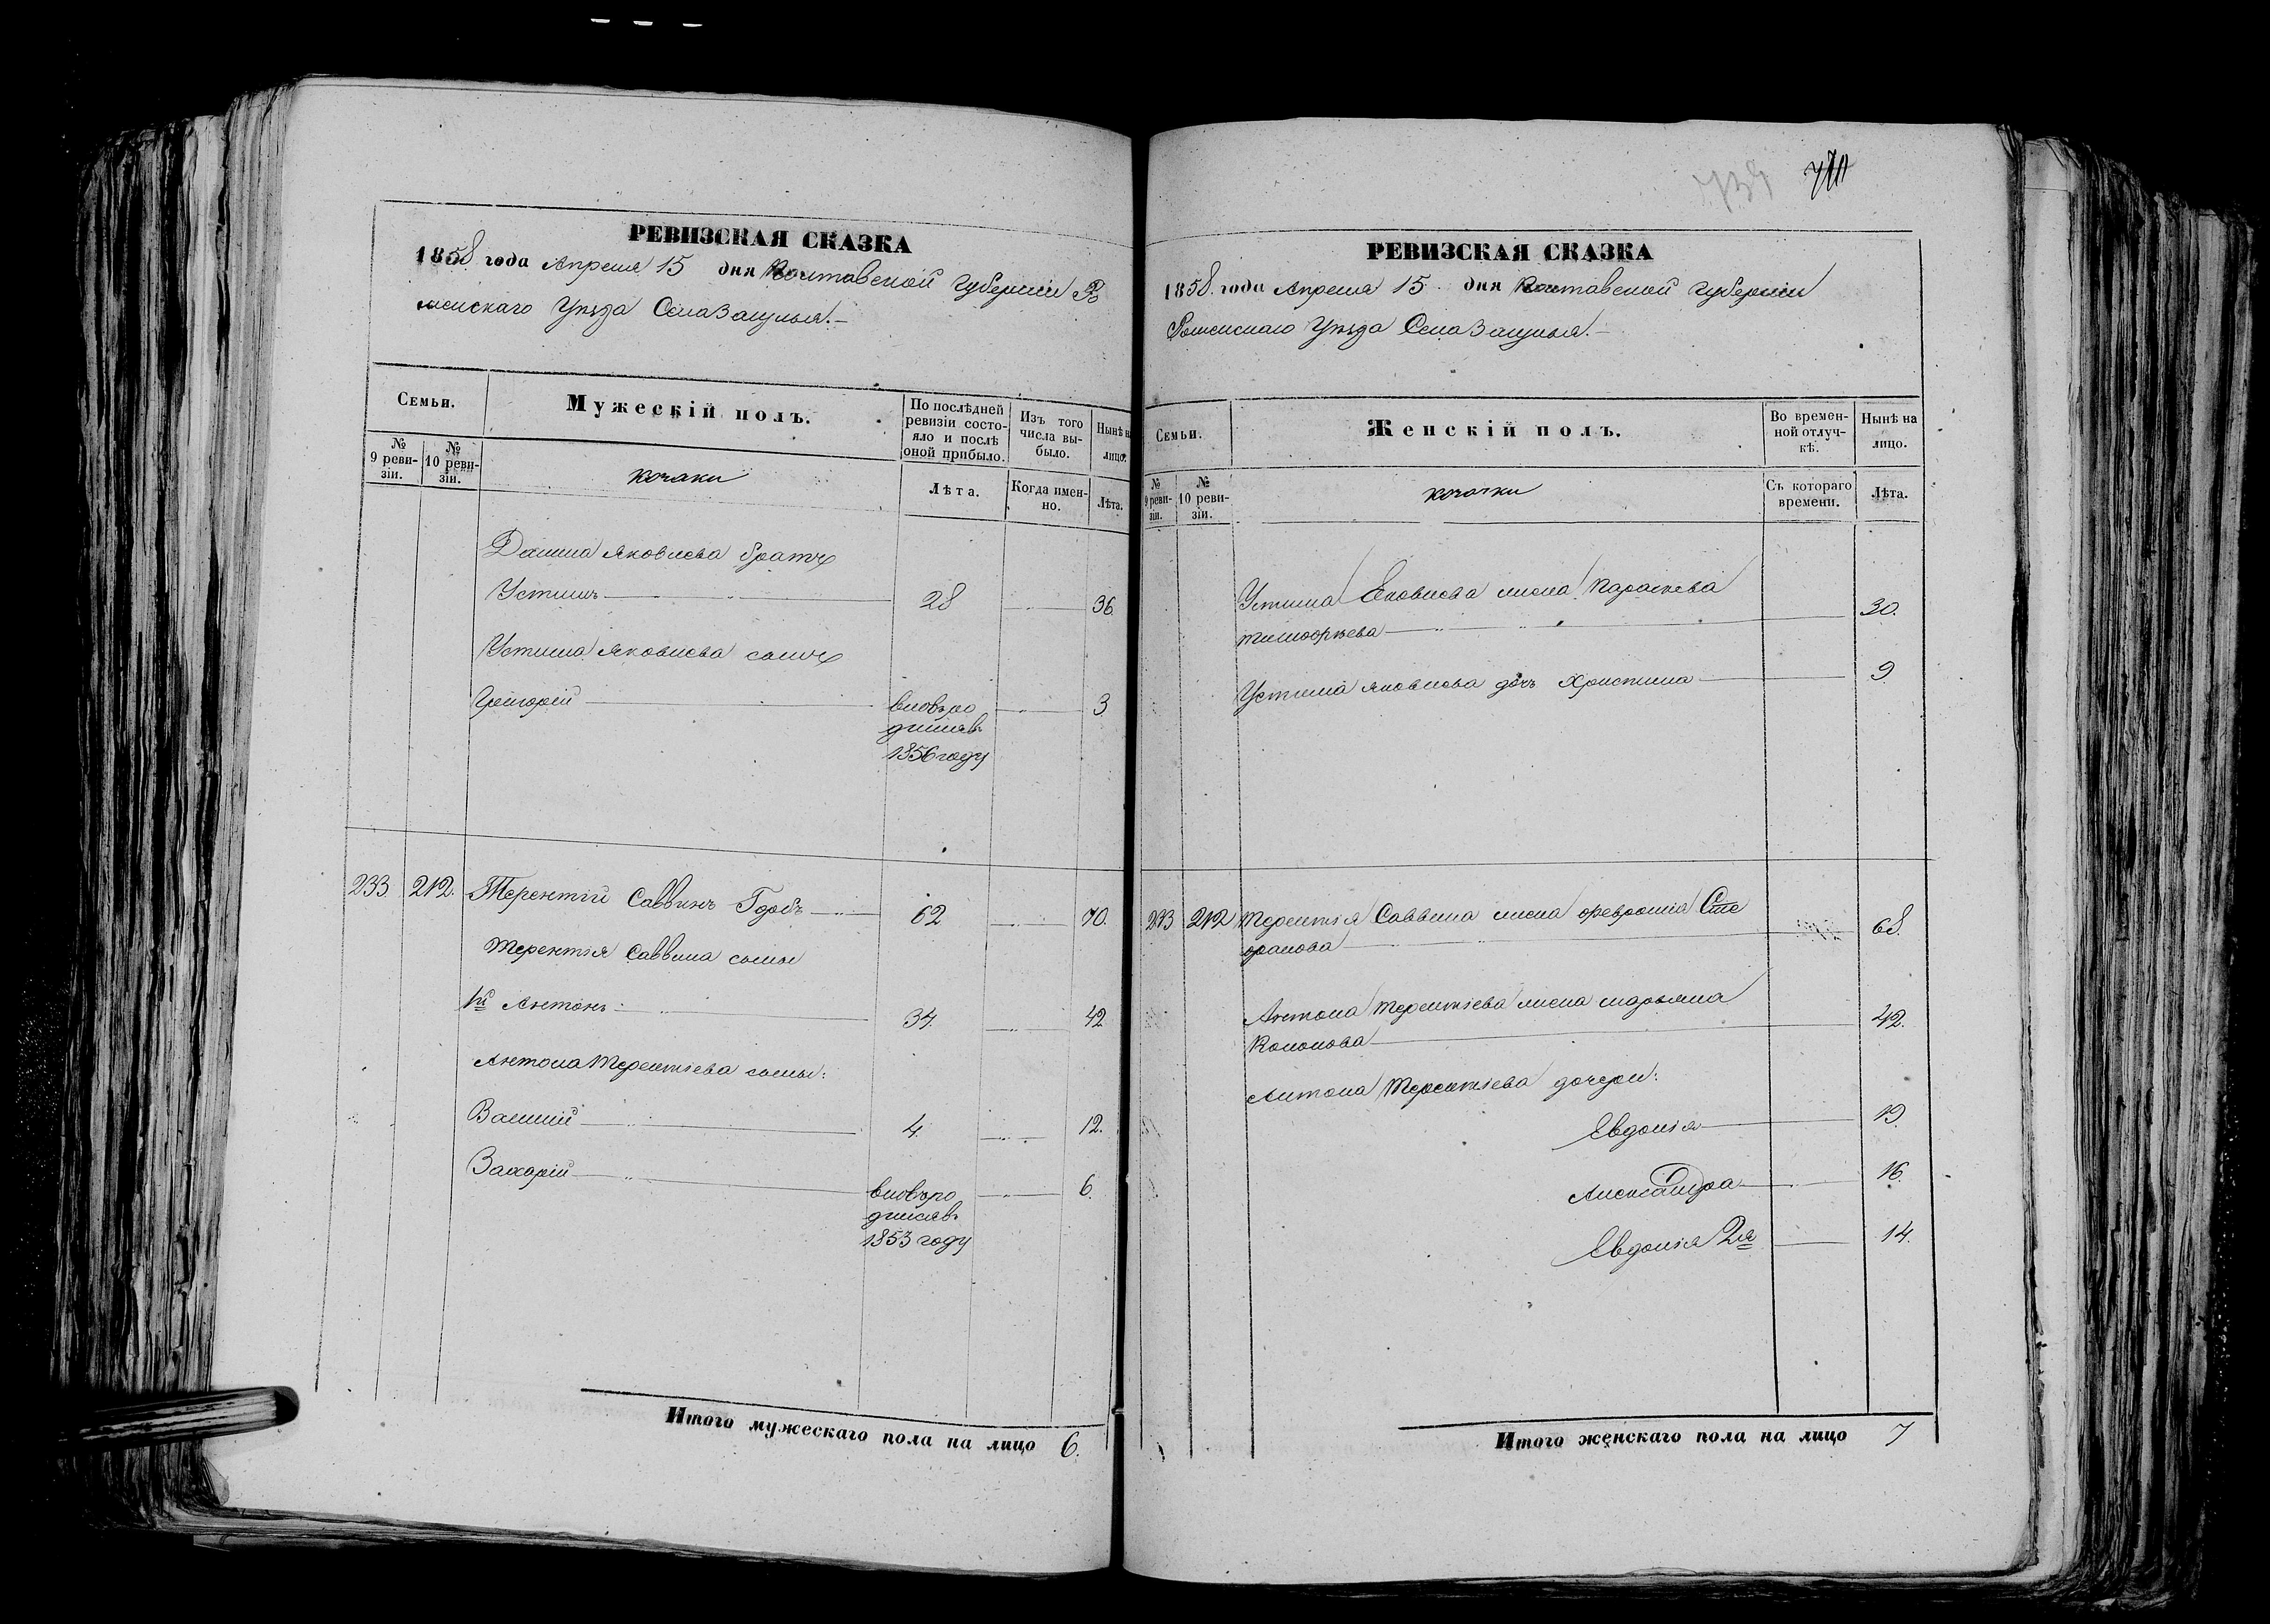 739
РЕВИЗСКАЯ СКАЗКА
1858 года Апреля 15 дня Полтавской Губерніи Ро
менскаго Уѣзда Села Засулья.—
Семьи.
Мужескій полъ.
По послѣдней ревизіи состояло и послѣ оной прибыло.
Изъ того числа выбыло.
Нынѣ на лицо.
№ 9 ревизіи.
№ 10 ревизіи.
козаки
Лѣта.
Когда именно.
Лѣта.
Данила Яковлева братъ
Устинъ 28 36.
Устина Яковлева сынъ
Григорій вновь ро 3
дился въ
1856 году
233 212. Терентій Саввинъ 62 70.
Терентія Саввина сыны
1й Антонъ 34. 42
Антона Терентіева сыны:
Василій 4. 12.
Захарій вновь ро 6.
дился въ
1853 году
Итого мужескаго пола на лицо 6.
РЕВИЗСКАЯ СКАЗКА
1858. года Апреля 15 дня Полтавской Губерніи
Роменскаго Уѣзда Села Засулья.—
Семьи.
Женскій полъ.
Во временной отлучкѣ.
Нынѣ на лицо.
№ 9 ревизіи.
№ 10 ревизіи.
козачки
Съ котораго времени.
Лѣта.
Устина Яковлева жена Параскева
Тимофѣева 30.
Устина Яковлева дочь Христина 9
233 212 Терентія Саввина жена Феврошія Сте
фанова 68.
Антона Терентіева жена Марьяна
Кононова 42.
Антона Терентіева дочери:
Евдокія 19.
Александра 16.
Евдокія 2я 14.
Итого женскаго пола на лицо 7